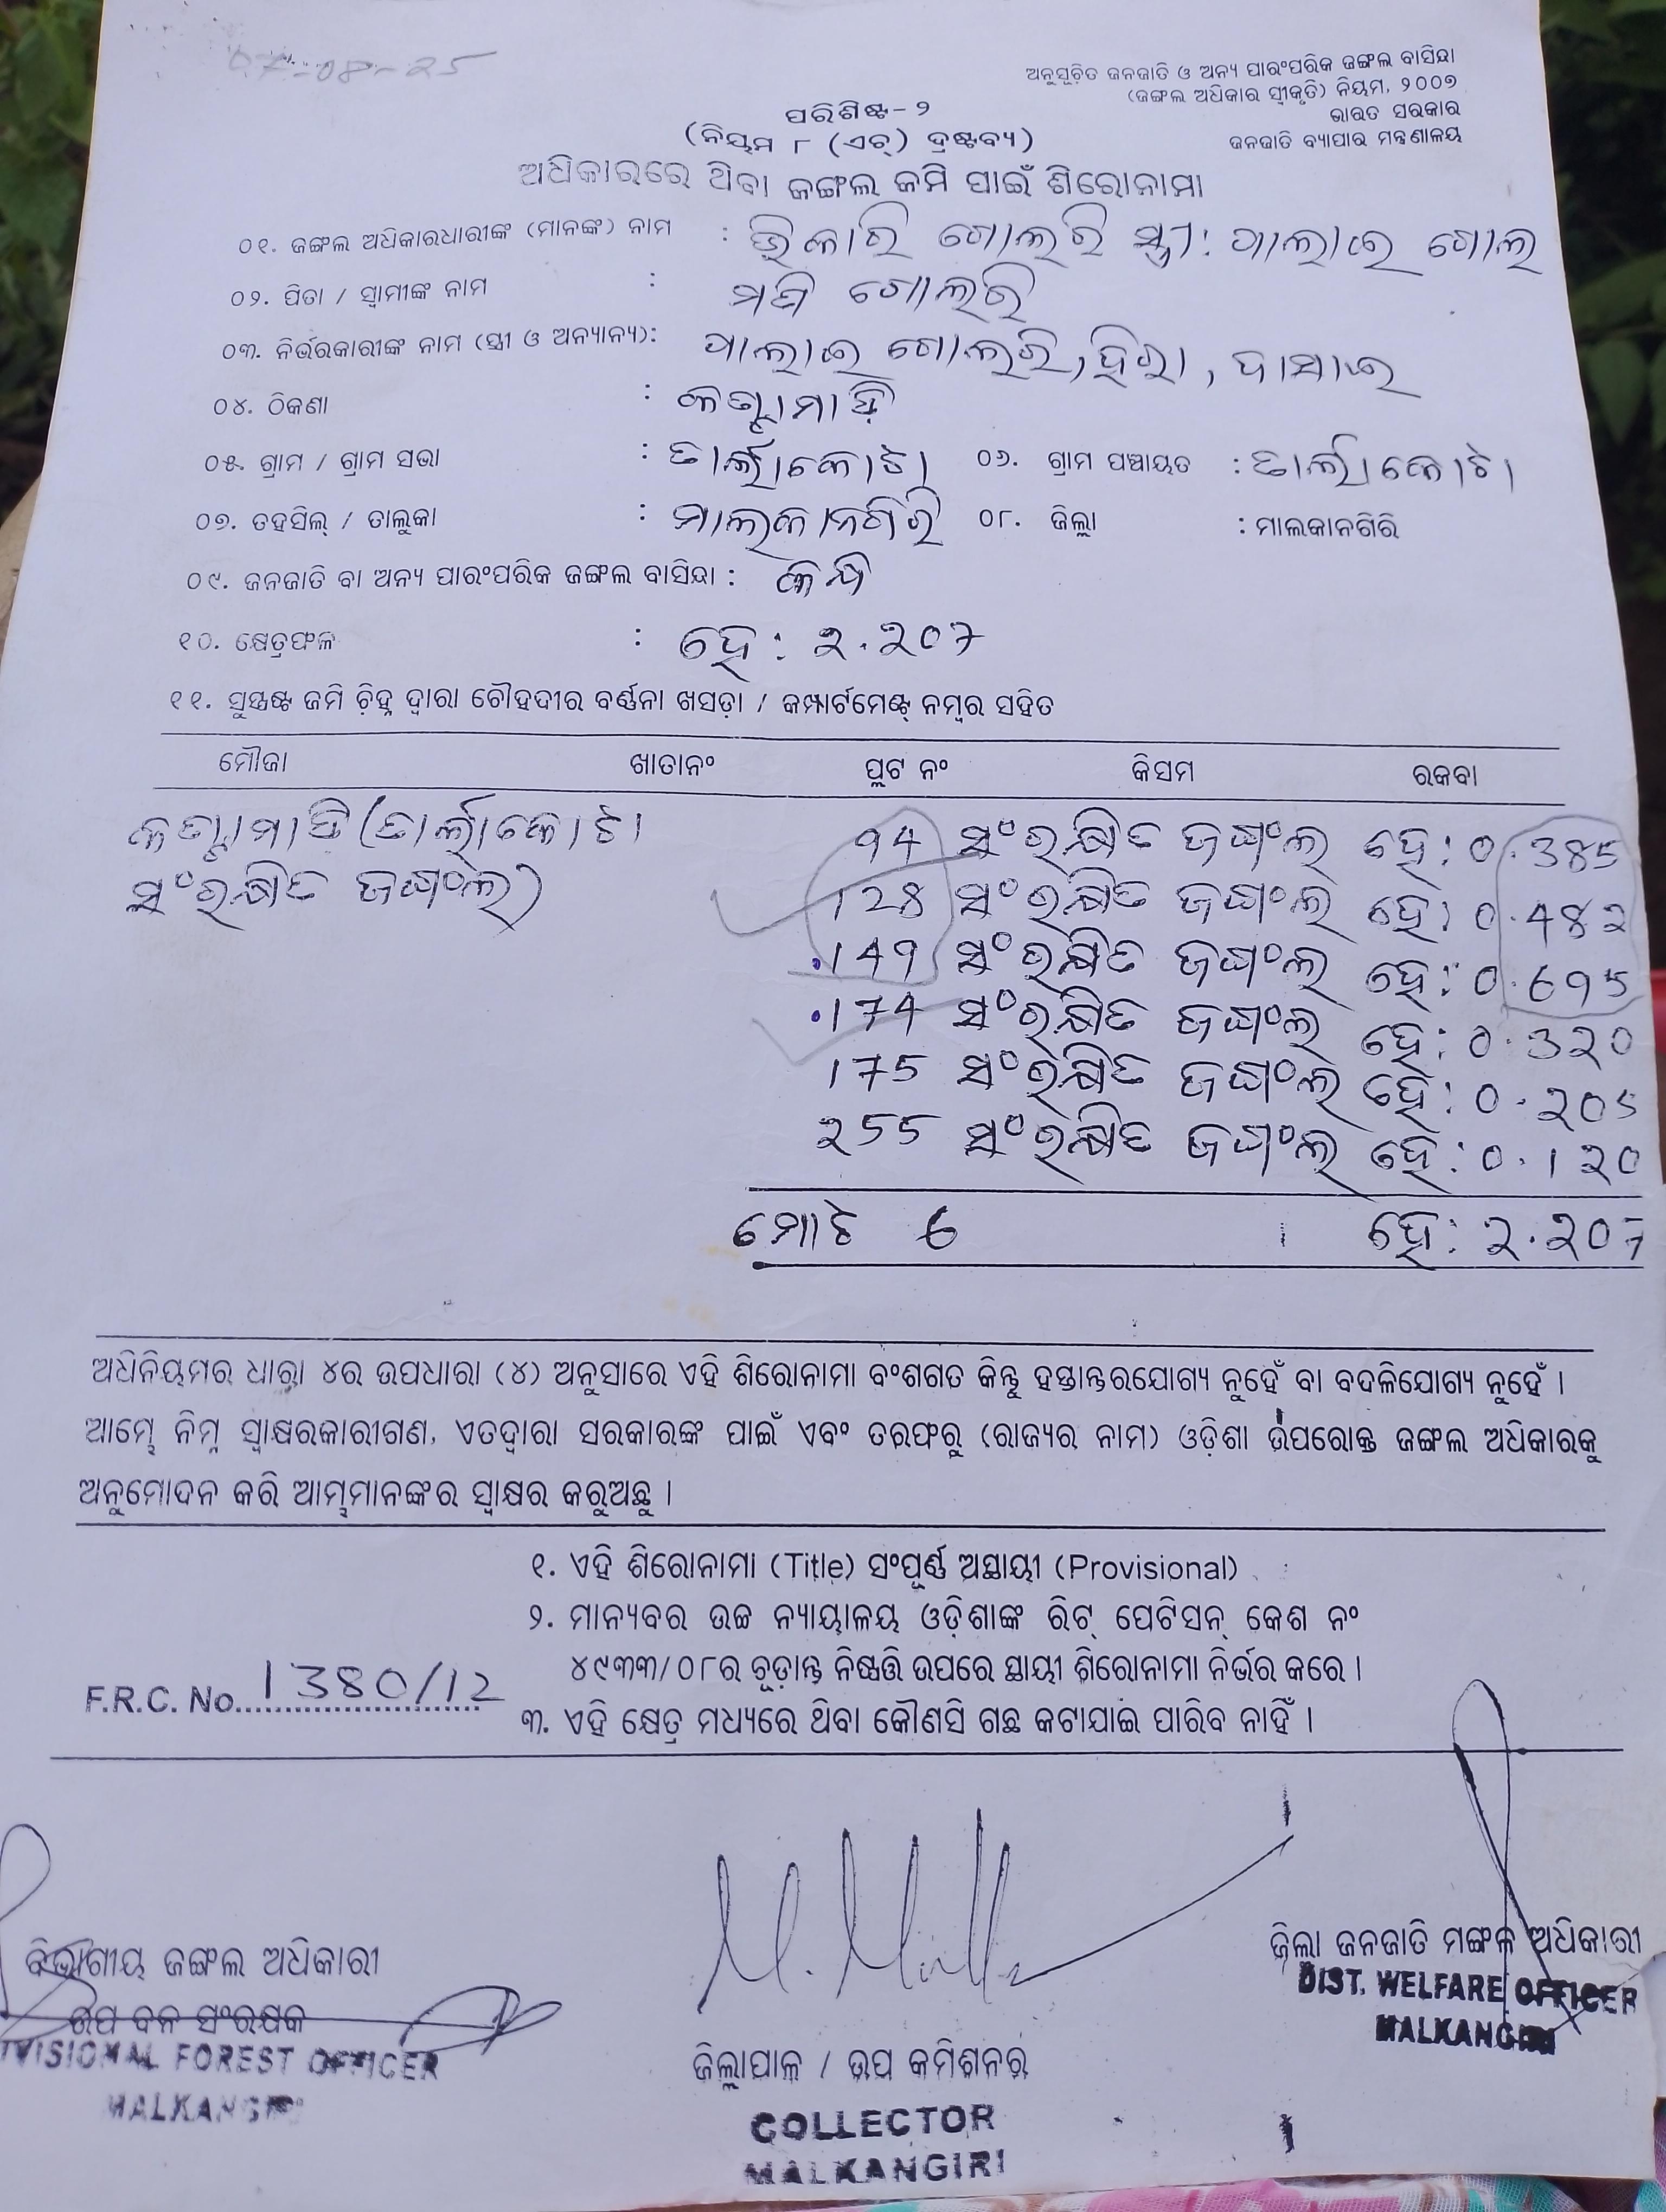 07-08-25
ଅନୁସୂଚିତ ଜନଜାତି ଓ ଅନ୍ୟ ପାରଂପରିକ ଜଙ୍ଗଲ ବାସିନ୍ଦା
(ଜଙ୍ଗଲ ଅଧିକାର ସ୍ୱୀକୃତି) ନିୟମ, ୨୦୦୭
ଭାରତ ସରକାର
ଜନଜାତି ବ୍ୟାପାର ମନ୍ତ୍ରଣାଳୟ
ପରିଶିଷ୍ଟ - ୨
(ନିୟମ ୮ (ଏଚ୍) ଦ୍ରଷ୍ଟବ୍ୟ)
ଅଧିକାରରେ ଥିବା ଜଙ୍ଗଲ ଜମି ପାଇଁ ଶିରୋନାମା
୦୧. ଜଙ୍ଗଲ ଅଧିକାରଧାରୀଙ୍କ (ମାନଙ୍କ) ନାମ : ଭିକାରି ଗୋଲରି ସ୍ତ୍ରୀ: ପାଲାଇ ଗୋଲ
୦୨. ପିତା / ସ୍ୱାମୀଙ୍କ ନାମ : ଗୋଲରି
୦୩. ନିର୍ଭରକାରୀଙ୍କ ନାମ (ସ୍ତ୍ରୀ ଓ ଅନ୍ୟାନ୍ୟ): ପାଲାଇ ଗୋଲରି, ହିରା, ଦାସାଇ
୦୪. ଠିକଣା :
୦୫. ଗ୍ରାମ / ଗ୍ରାମ ସଭା : ତାର୍ଲାକୋଟା ୦୬. ଗ୍ରାମ ପଞ୍ଚାୟତ : ତାର୍ଲାକୋଟା
୦୭. ତହସିଲ୍ / ତାଲୁକା : ମାଲକାନଗିରି ୦୮. ଜିଲ୍ଲା : ମାଲକାନଗିରି
୦୯. ଜନଜାତି ବା ଅନ୍ୟ ପାରଂପରିକ ଜଙ୍ଗଲ ବାସିନ୍ଦା : କନ୍ଧ
୧୦. କ୍ଷେତ୍ରଫଳ : ହେ: ୨.୨07
୧୧. ସୁସ୍ପଷ୍ଟ ଜମି ଚିହ୍ନ ଦ୍ୱାରା ଚୌହଦୀର ବର୍ଣ୍ଣନା ଖସଡ଼ା / କମ୍ପାର୍ଟମେଣ୍ଟ୍ ନମ୍ବର ସହିତ
ମୌଜା ଖାତାନଂ ପ୍ଲଟ ନଂ କିସମ ରକବା
(ତାର୍ଲାକୋଟା 94 ସଂରକ୍ଷିତ ଜଙ୍ଗଲ ହେ: 0.385
ସଂରକ୍ଷିତ ଜଙ୍ଗଲ) 128 ସଂରକ୍ଷିତ ଜଙ୍ଗଲ ହେ: 0.482
149 ସଂରକ୍ଷିତ ଜଙ୍ଗଲ ହେ: 0.695
174 ସଂରକ୍ଷିତ ଜଙ୍ଗଲ ହେ: 0.320
175 ସଂରକ୍ଷିତ ଜଙ୍ଗଲ ହେ: 0.205
255 ସଂରକ୍ଷିତ ଜଙ୍ଗଲ ହେ: 0.120
ମୋଟ 6 ହେ: ୨.୨07
ଅଧିନିୟମର ଧାରା ୪ର ଉପଧାରା (୪) ଅନୁସାରେ ଏହି ଶିରୋନାମା ବଂଶଗତ କିନ୍ତୁ ହସ୍ତାନ୍ତରଯୋଗ୍ୟ ନୁହେଁ ବା ବଦଳିଯୋଗ୍ୟ ନୁହେଁ ।
ଆମ୍ଭେ ନିମ୍ନ ସ୍ୱାକ୍ଷରକାରୀଗଣ, ଏତଦ୍ୱାରା ସରକାରଙ୍କ ପାଇଁ ଏବଂ ତରଫରୁ (ରାଜ୍ୟର ନାମ) ଓଡ଼ିଶା ଉପରୋକ୍ତ ଜଙ୍ଗଲ ଅଧିକାରକୁ
ଅନୁମୋଦନ କରି ଆମ୍ଭମାନଙ୍କର ସ୍ୱାକ୍ଷର କରୁଅଛୁ ।
୧. ଏହି ଶିରୋନାମା (Title) ସଂପୂର୍ଣ୍ଣ ଅସ୍ଥାୟୀ (Provisional)
୨. ମାନ୍ୟବର ଉଚ୍ଚ ନ୍ୟାୟାଳୟ ଓଡ଼ିଶାଙ୍କ ରିଟ୍ ପେଟିସନ୍ କେଶ ନଂ
୪୯୩୩/୦୮ର ଚୂଡ଼ାନ୍ତ ନିଷ୍ପତ୍ତି ଉପରେ ସ୍ଥାୟୀ ଶିରୋନାମା ନିର୍ଭର କରେ ।
F.R.C. No. 1380/12
୩. ଏହି କ୍ଷେତ୍ର ମଧ୍ୟରେ ଥିବା କୌଣସି ଗଛ କଟାଯାଇ ପାରିବ ନାହିଁ ।
ବିଭାଗୀୟ ଜଙ୍ଗଲ ଅଧିକାରୀ
ଉପ ବନ ସଂରକ୍ଷକ
IVISIONAL FOREST OFFICER
MALKANGIRI
ଜିଲ୍ଲାପାଳ / ଉପ କମିଶନର
COLLECTOR
MALKANGIRI
ଜିଲ୍ଲା ଜନଜାତି ମଙ୍ଗଳ ଅଧିକାରୀ
DIST. WELFARE OFFICER
MALKANGIRI